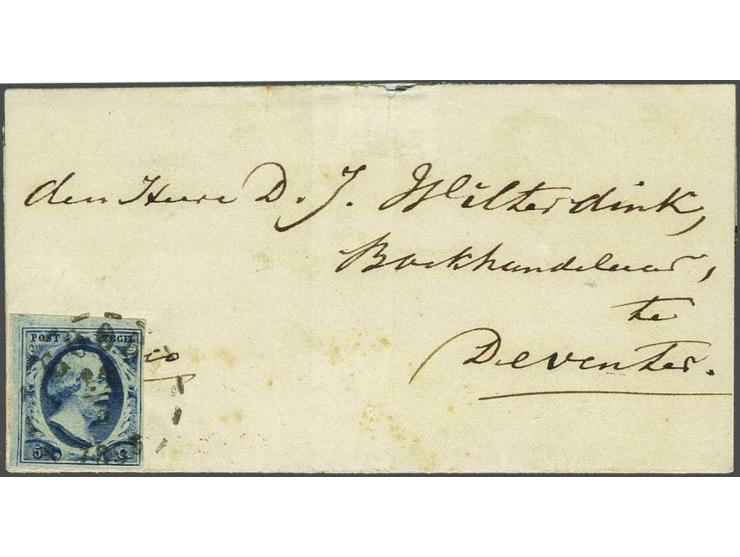 den Heere D. J. Wilterdink,
Boekhandelaar,
te
Deventer.
POST ZEGEL
5 C